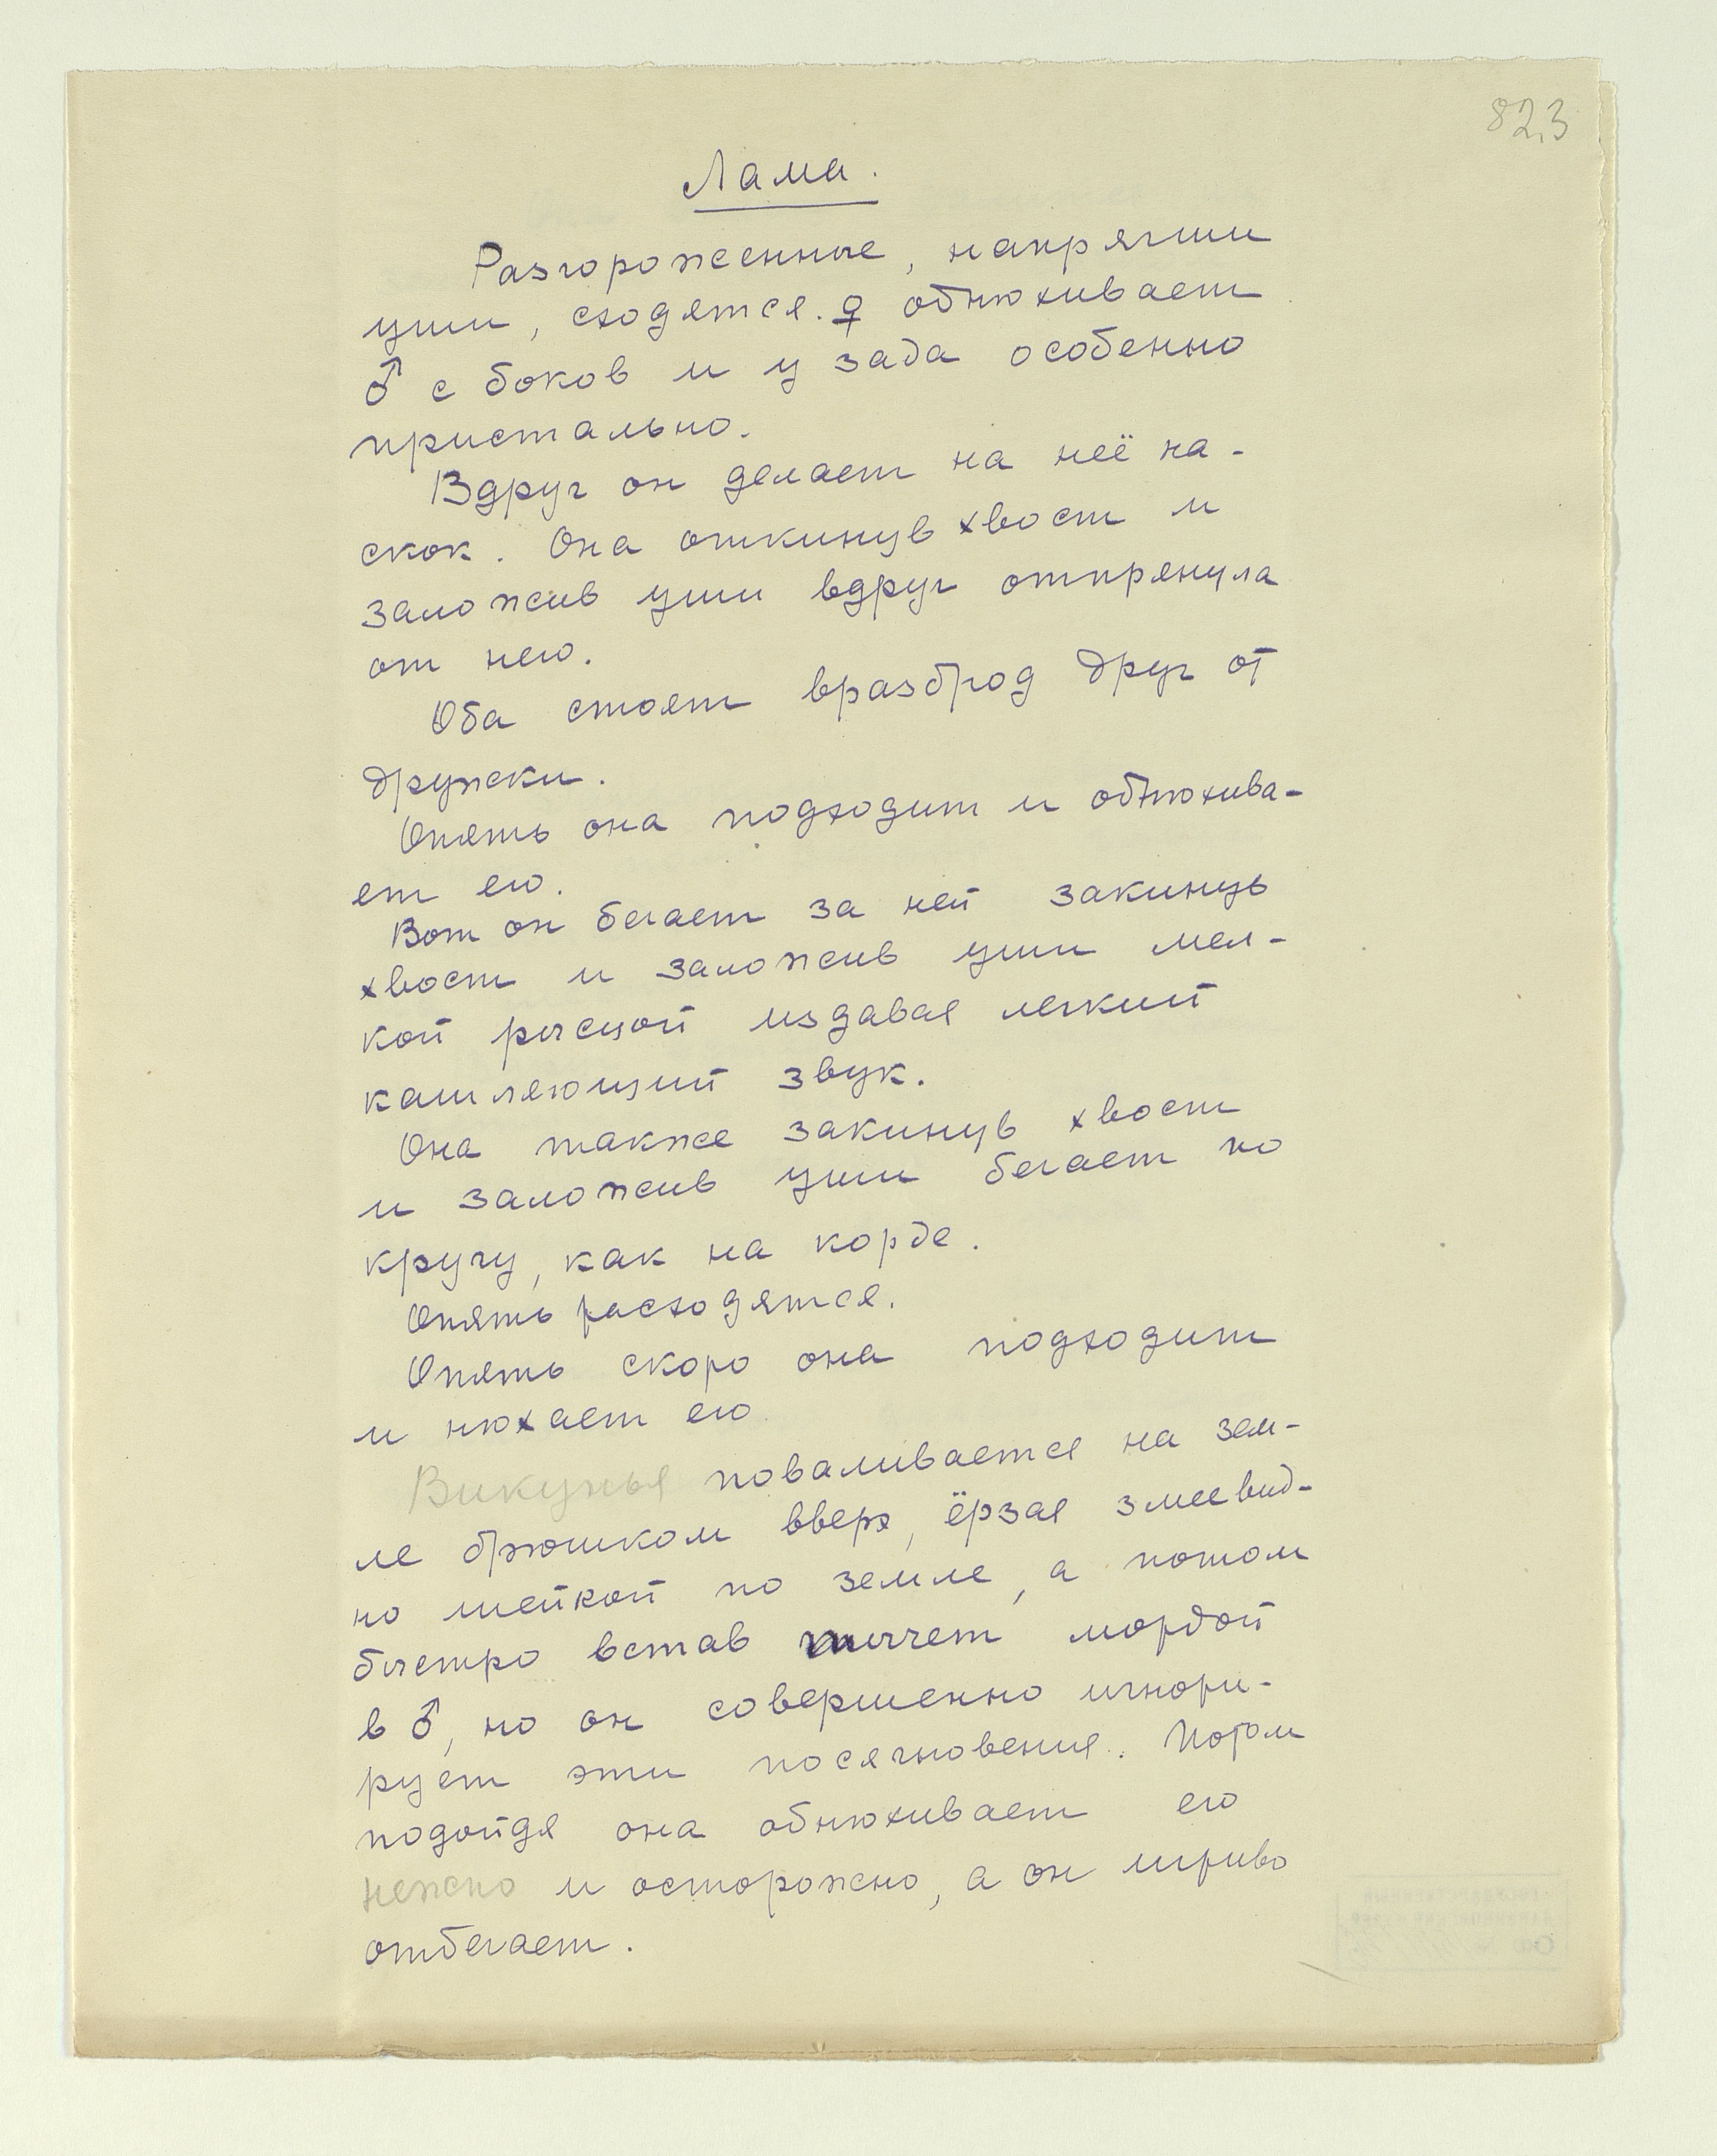 823
Лама.
Разгороженные, напрягши
уши, сходятся. ♀ обнюхивает
♂ с боков и у зада особенно
пристально.
Вдруг он делает на неё на-
скок. Она откинув хвост и
заложив уши вдруг отпрянула
от него.
Оба стоят вразброд друг от
дружки.
Опять она подходит и обнюхива-
ет его.
Вот он бегает за ней закинув
хвост и заложив уши мел-
кой рысцой издавая легкий
кашляющий звук.
Она также закинув хвост
и заложив уши бегает по
кругу, как на корде.
Опять расходятся.
Опять скоро она подходит
и нюхает его
Викунья поваливается на зем-
ле брюшком вверх, ёрзая змеевид-
но шейкой по земле, а потом
быстро встав тычет мордой
в ♂, но он совершенно игнори-
рует эти посягновения. Потом
подойдя она обнюхивает его
нежно и осторожно, а он игриво
отбегает.